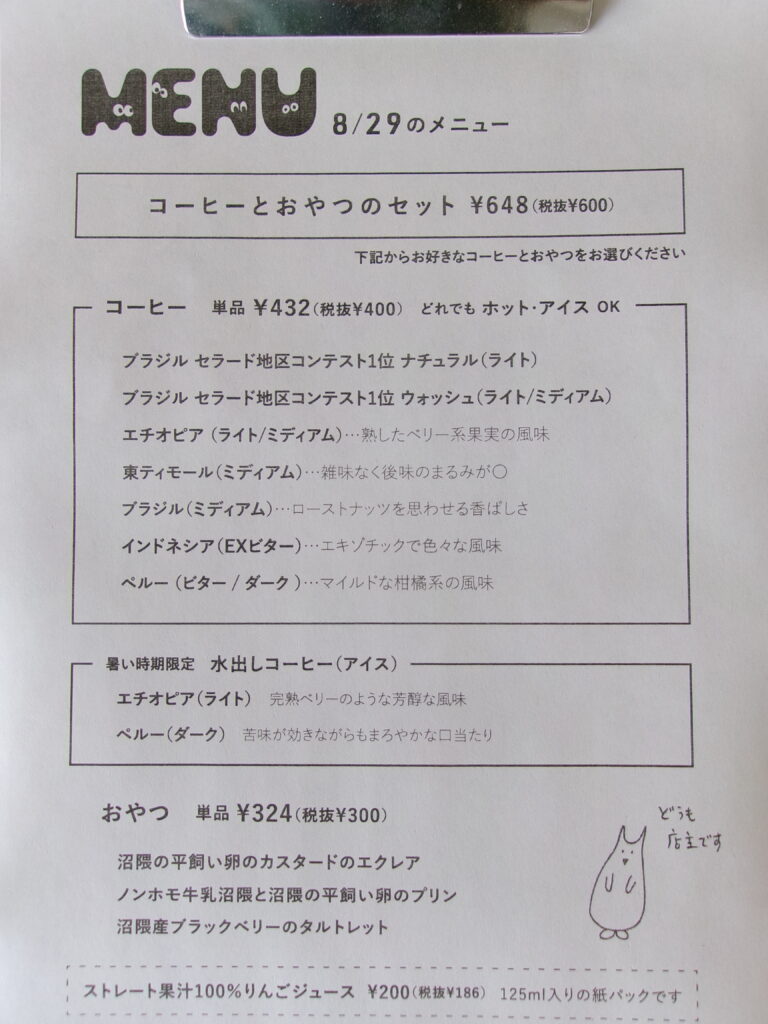 MENU 8/29のメニュー
コーヒーとおやつのセット ¥648(税抜¥600)
下記からお好きなコーヒーとおやつをお選びください
コーヒー 単品 ¥432(税抜¥400) どれでも ホット・アイス OK
ブラジル セラード地区コンテスト1位 ナチュラル(ライト)
ブラジル セラード地区コンテスト1位 ウォッシュ(ライト/ミディアム)
エチオピア (ライト/ミディアム)…熟したベリー系果実の風味
東ティモール(ミディアム)…雑味なく後味のまるみが〇
ブラジル(ミディアム)…ローストナッツを思わせる香ばしさ
インドネシア(EXビター)…エキゾチックで色々な風味
ペルー (ビター / ダーク )…マイルドな柑橘系の風味
暑い時期限定 水出しコーヒー(アイス)
エチオピア(ライト) 完熟ベリーのような芳醇な風味
ペルー(ダーク) 苦味が効きながらもまろやかな口当たり
おやつ 単品 ¥324(税抜¥300)
沼隈の平飼い卵のカスタードのエクレア
ノンホモ牛乳沼隈と沼隈の平飼い卵のプリン
沼隈産ブラックベリーのタルトレット
どうも
店主です
ストレート果汁100%りんごジュース ¥200(税抜¥186) 125ml入りの紙パックです